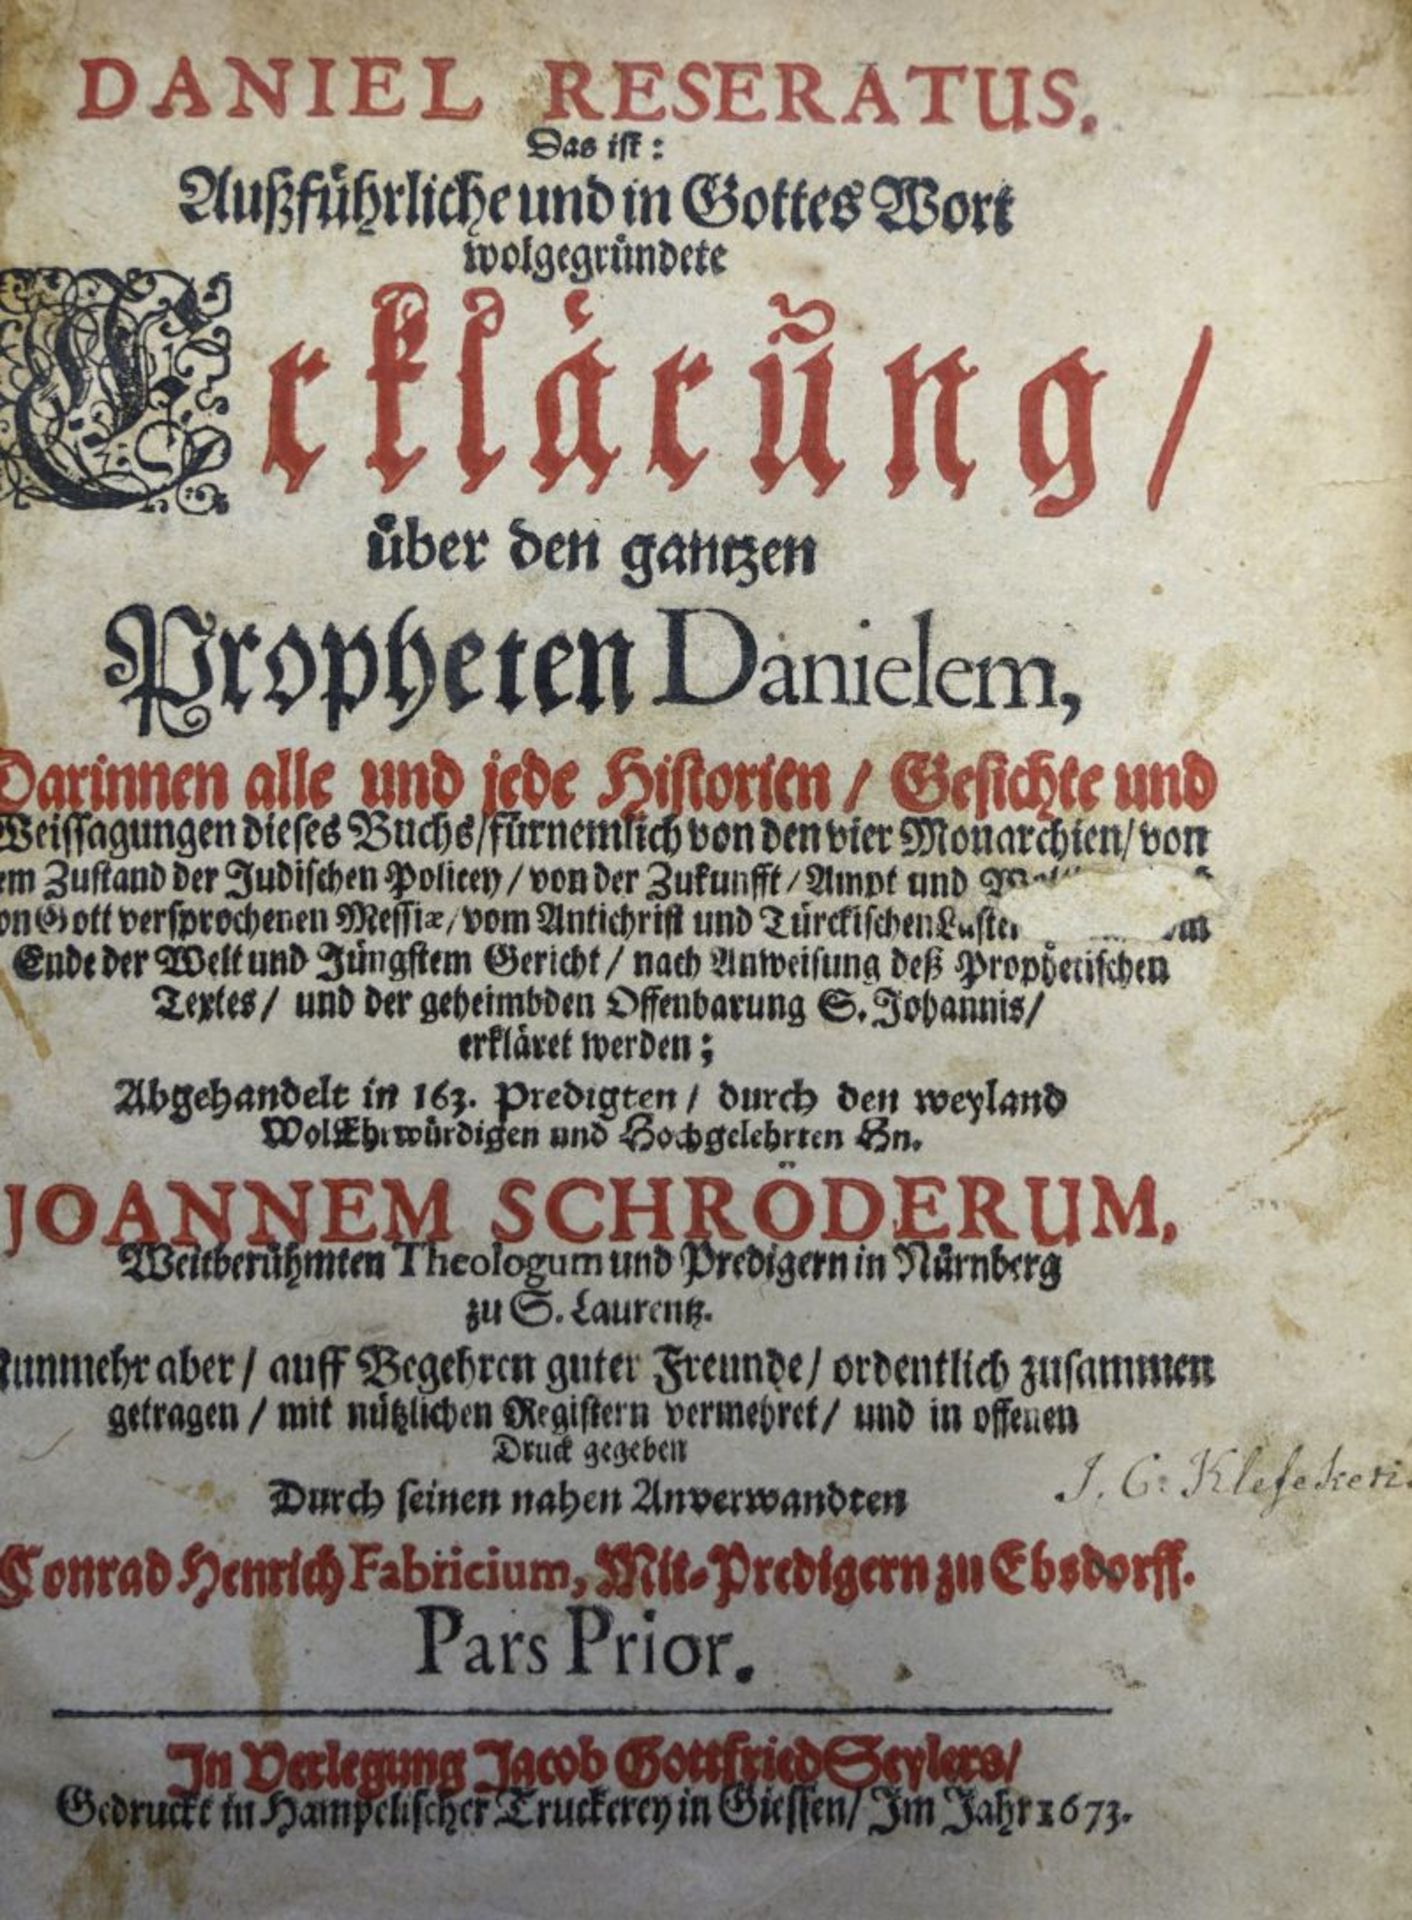 DANIEL RESERATUS.
Das ist:
Außführliche und in Gottes Wort
wolgegründete
Erklärung/
über den gantzen
Propheten Danielem,
Darinnen alle und jede Historien / Gesichte und
Weissagungen dieses Buchs/fürnemlich von den vier Monarchien/von
em Zustand der Judischen Policey / von der Zukunfft / Ampt und
on Gott versprochenen Messiæ/vom Antichrist und Türckischen
Ende der Welt und Jüngstem Gericht / nach Anweisung deß Prophetischen
Textes/ und der geheimbden Offenbarung S. Johannis/
erkläret werden;
Abgehandelt in 163. Predigten / durch den weyland
WolEhrwürdigen und Hochgelehrten Hn.
JOANNEM SCHRÖDERUM,
Weitberühmten Theologum und Predigern in Nürnberg
zu S. Laurentz.
Nunmehr aber/ auff Begehren guter Freunde/ ordentlich zusammen
getragen / mit nützlichen Registern vermehret/ und in offenen
Druck gegeben
Durch seinen nahen Anverwandten
J. C. Klefekeri.
Conrad Henrich Fabricium, Mit-Predigern zu Ebsdorff.
Pars Prior.
In Verlegung Jacob Gottfried Seylers/
Gedruckt in Hampelischer Truckerey in Giessen/ Im Jahr 1673.